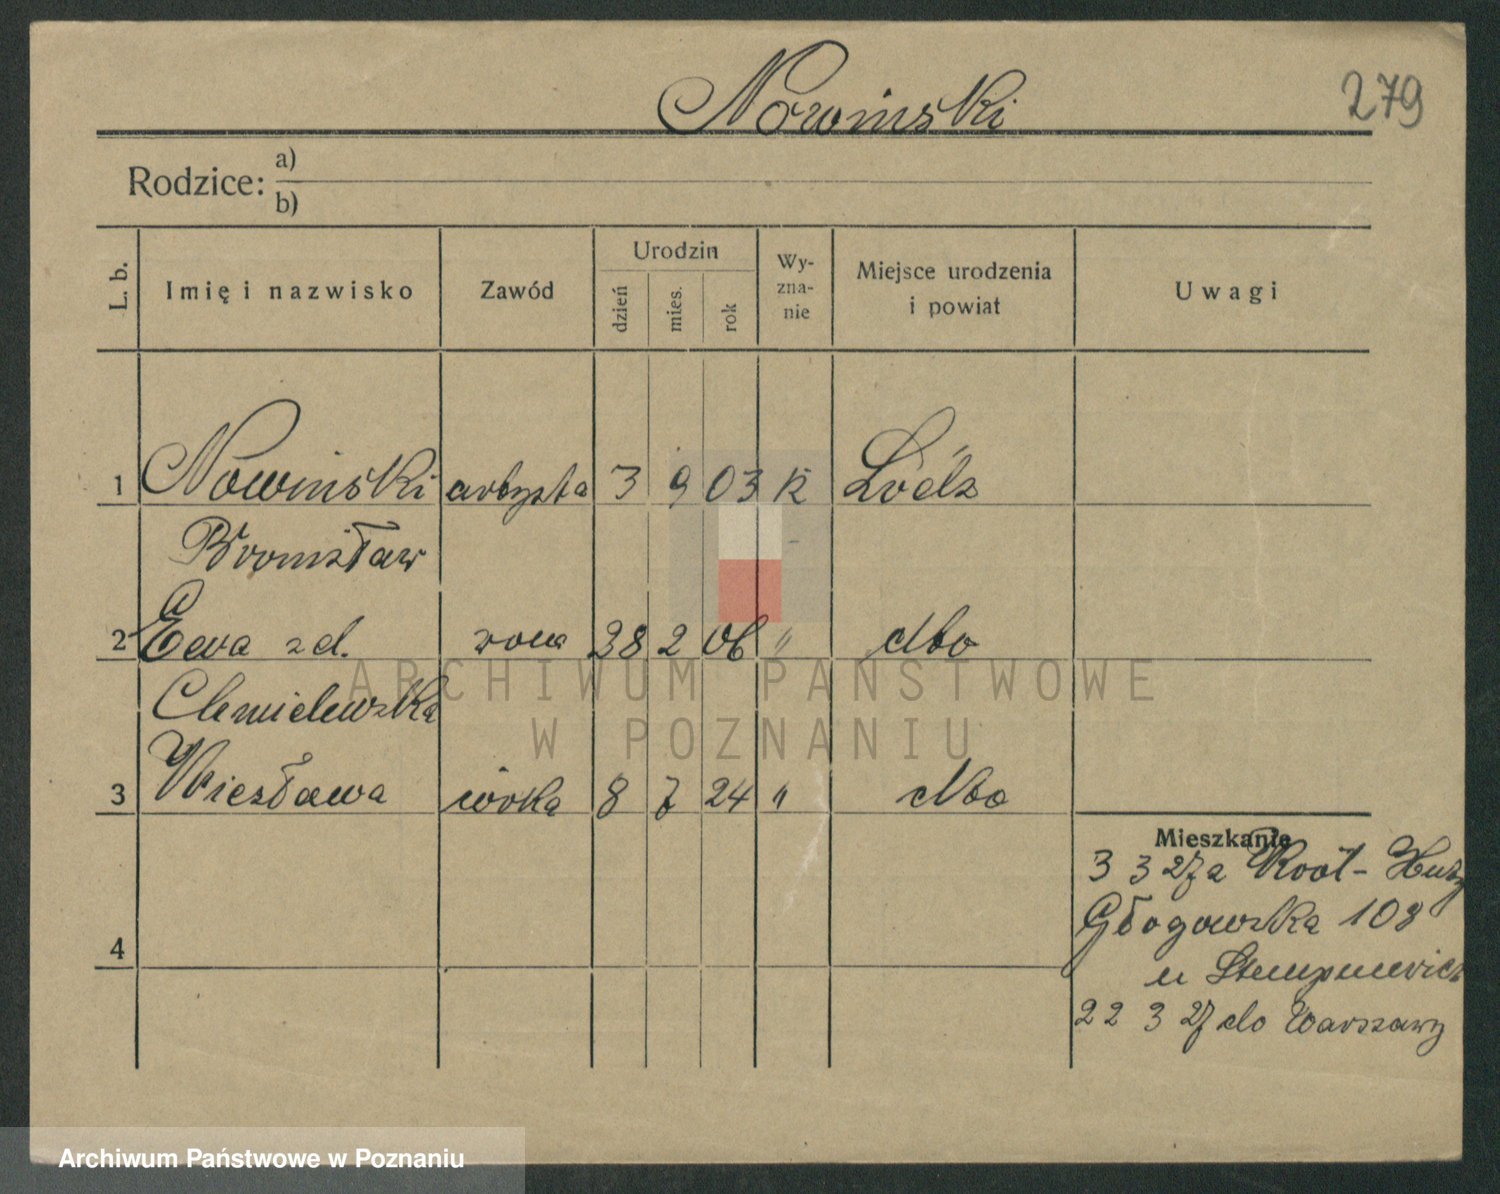 Nowinski
279
Rodzice: a)
b)
L. b.
Imię i nazwisko
Zawód
Urodzin
dzień
mies.
rok
Wy-
zna-
nie
Miejsce urodzenia
i powiat
Uwagi
1 Nowinski artysta 3 9 03 k Łódz
Bronisław
2 Ewa zd. żona 28 2 06 " dto
Chmielewska
3 Wiesława córka 8 7 24 " dto
Mieszkanie
3 3 27 z
Głogowska 108
u
22 3 27 do Warszawy
4
ARCHIWUM PAŃSTWOWE
W POZNANIU
Archiwum Państwowe w Poznaniu